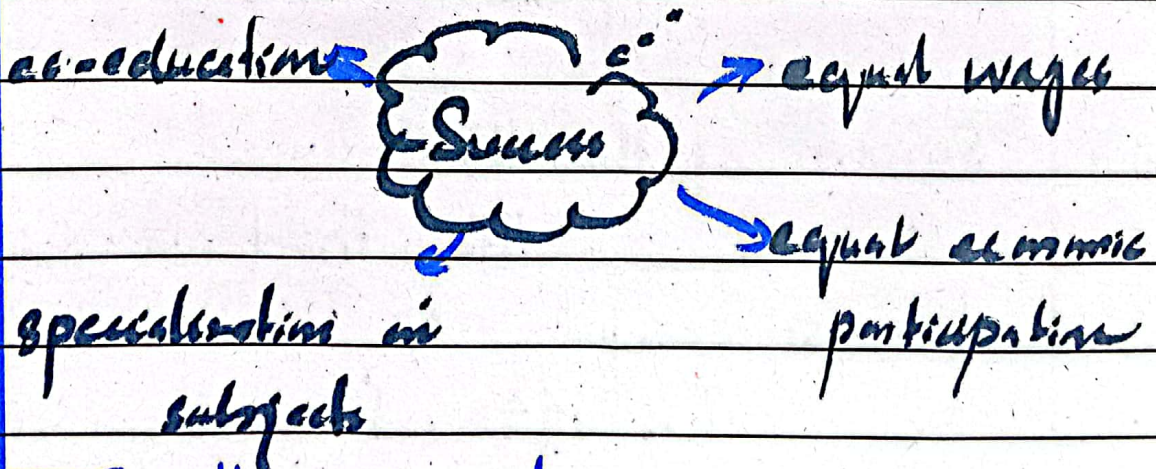 co-education
equal wages
Success
equal economic
participation
specialisation in
subjects